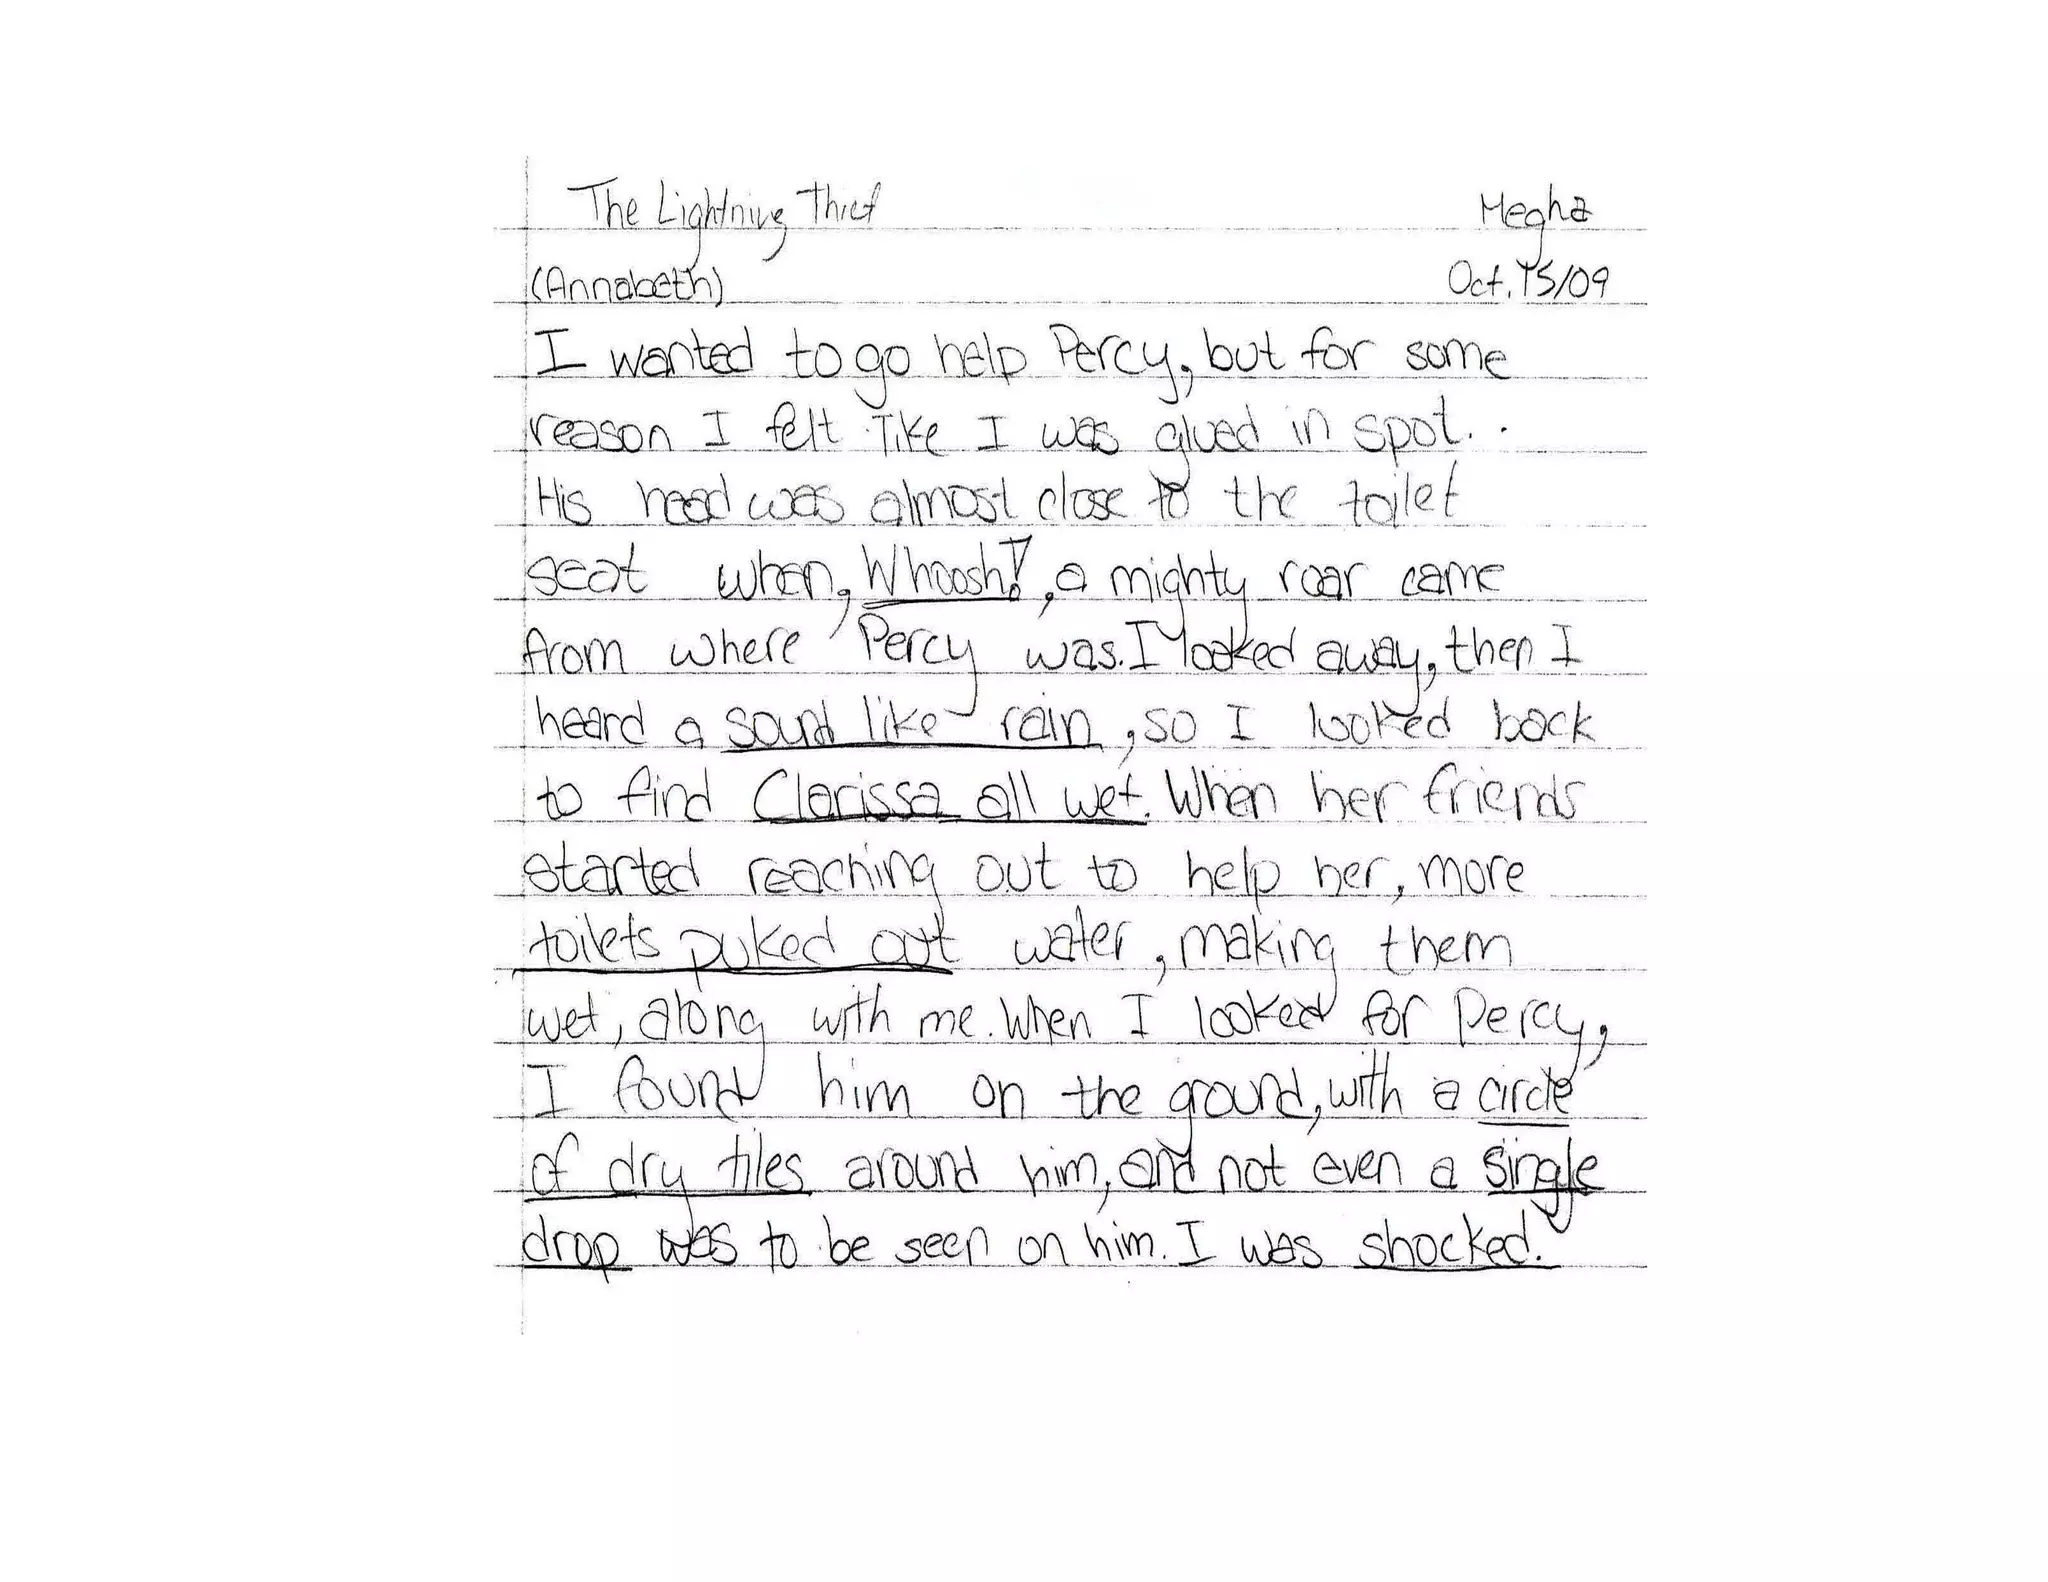 The Lightning Thief Megha
(Annabeth) Oct. 15/09
I wanted to go help Percy, but for some
reason I felt like I was glued in spot..
His head was almost close to the toilet
seat when, Whoosh!, a mighty roar came
from where Percy was. I looked away, then I
heard a sound like rain, so I looked back
to find Clarissa all wet. When her friends
started reaching out to help her, more
toilets puked out water, making them
wet, along with me. When I looked for Percy,
I found him on the ground, with a circle
of dry tiles around him, and not even a single
drop was to be seen on him. I was shocked.